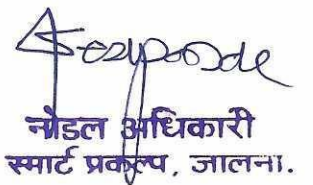 नोडल अधिकारी
स्मार्ट प्रकल्प, जालना.